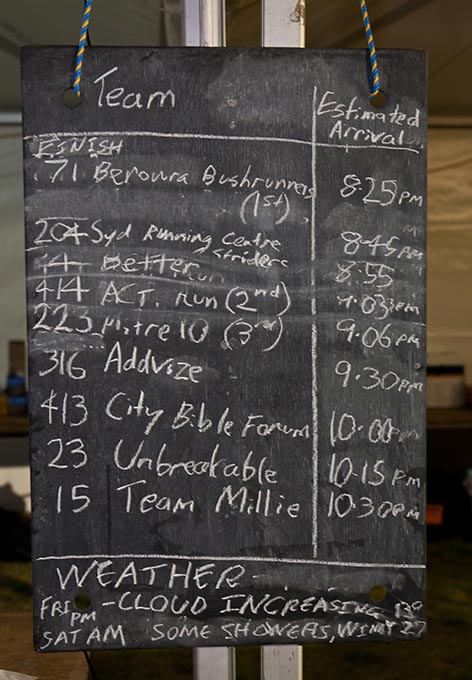 Team Estimated Arrival
FINISH
71 Berowra Bushrunners 8:25 pm
(1st)
204 Syd Running Centre 8:45 pm
Striders
44 Better 8:55
414 ACT. Run (2nd) 9:03 pm
223 Mitre 10 (3rd) 9:06 pm
316 Addvize 9.30 pm
413 City Bible Forum 10:00 pm
23 Unbreakable 10.15 pm
15 Team Millie 10:30 pm
WEATHER-
FRI PM - CLOUD INCREASING 13°
SAT AM SOME SHOWERS, WINDY 27